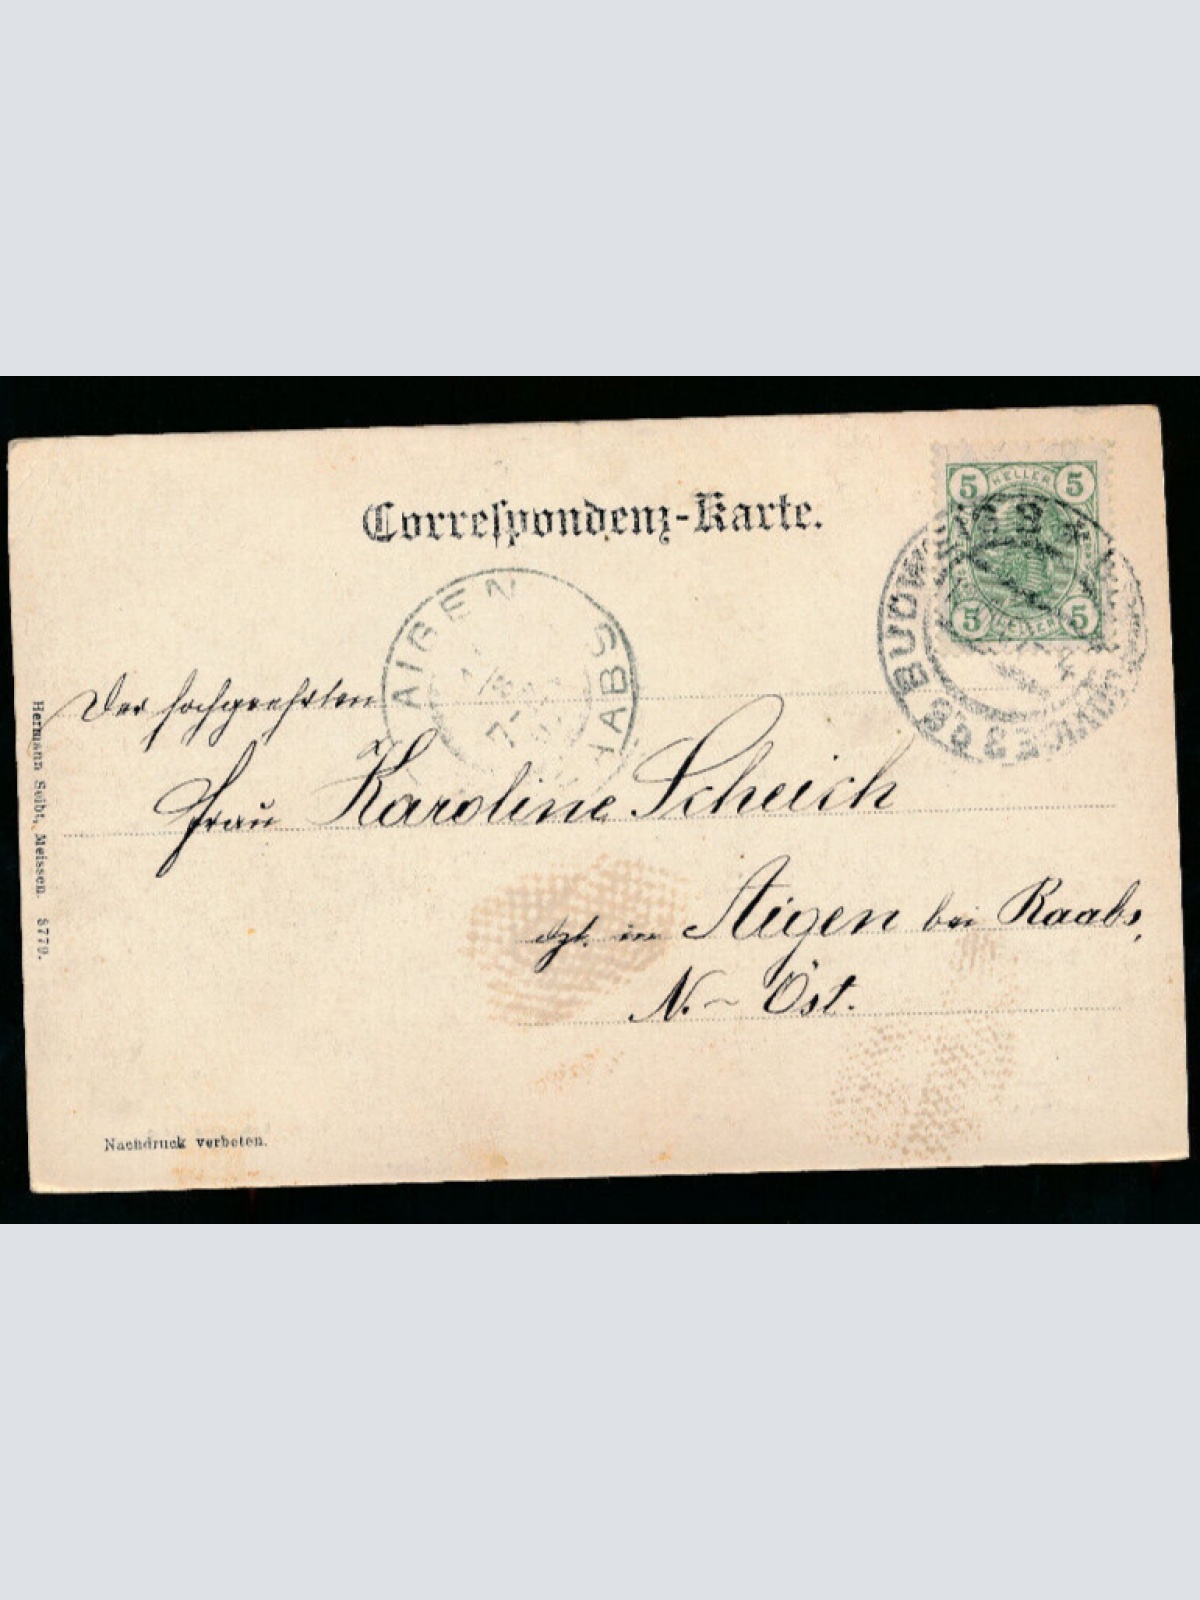 Correspondenz-Karte.
5 HELLER 5
5 HELLER 5
BUDWEIS
AIGEN
RAABS
Der hochgeehrten
Frau Karoline Scheich
dzt. in Aigen bei Raabs,
N.- Öst.
Hermann Seibt, Meissen. 8779.
Nachdruck verboten.